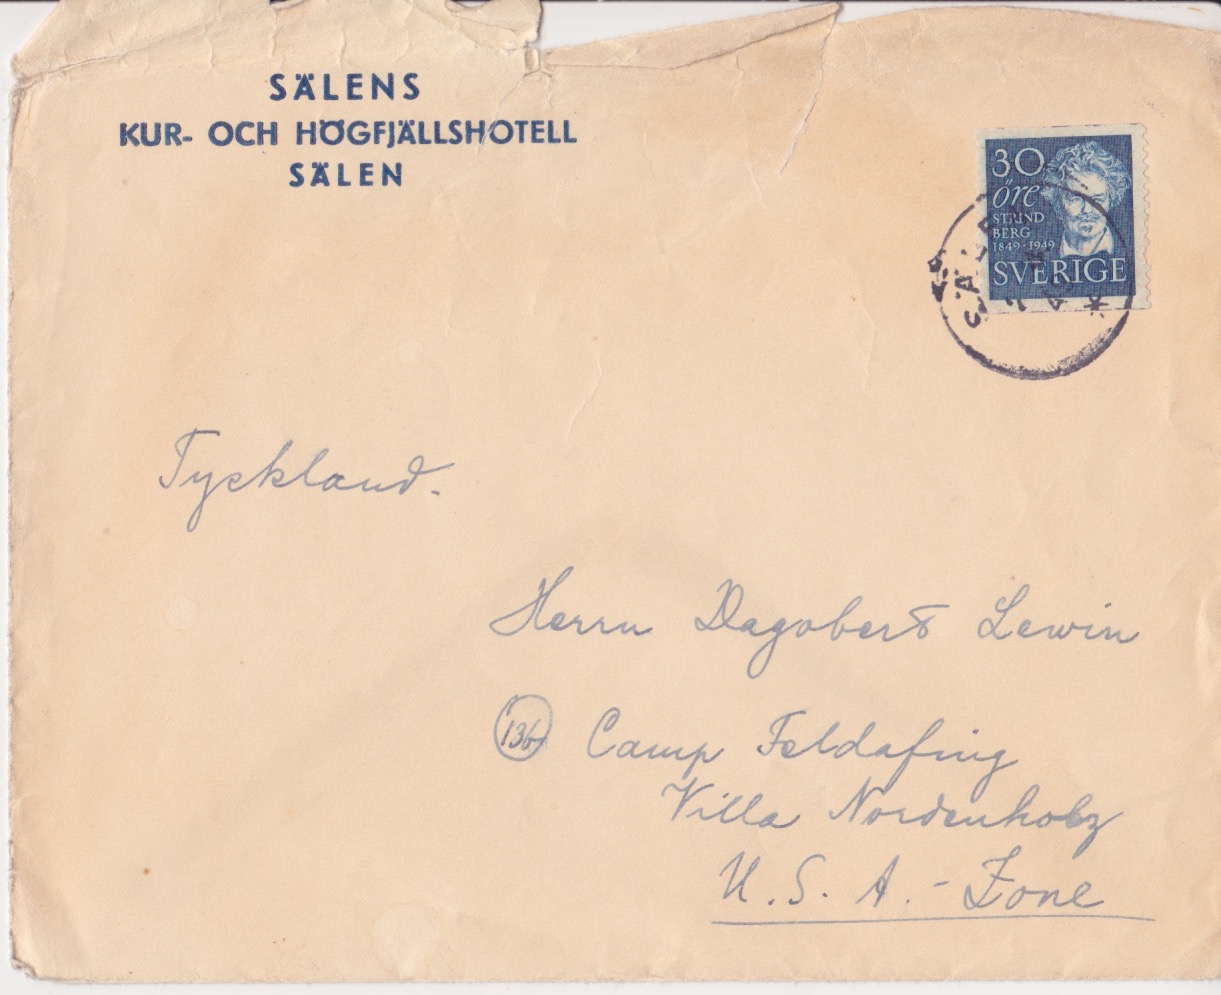 SÄLENS
KUR- OCH HÖGFJÄLLSHOTELL
SÄLEN
30
öre
STRIND
BERG
1849-1949
SVERIGE
SÄLEN
Tyskland.
Herrn Dagobert Lewin
13b Camp Feldafing
Villa Nordenholz
U.S.A.-Zone